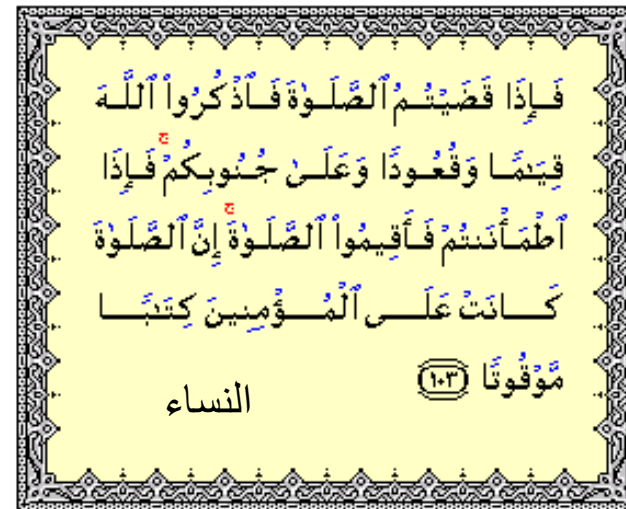 فَإِذَا قَضَيْتُمُ ٱلصَّلَوٰةَ فَٱذْكُرُوا۟ ٱللَّهَ
قِيَـٰمًا وَقُعُودًا وَعَلَىٰ جُنُوبِكُمْ ۚ فَإِذَا
ٱطْمَأْنَنتُمْ فَأَقِيمُوا۟ ٱلصَّلَوٰةَ ۚ إِنَّ ٱلصَّلَوٰةَ
كَانَتْ عَلَى ٱلْمُؤْمِنِينَ كِتَـٰبًا
مَّوْقُوتًا ١٠٣
النساء